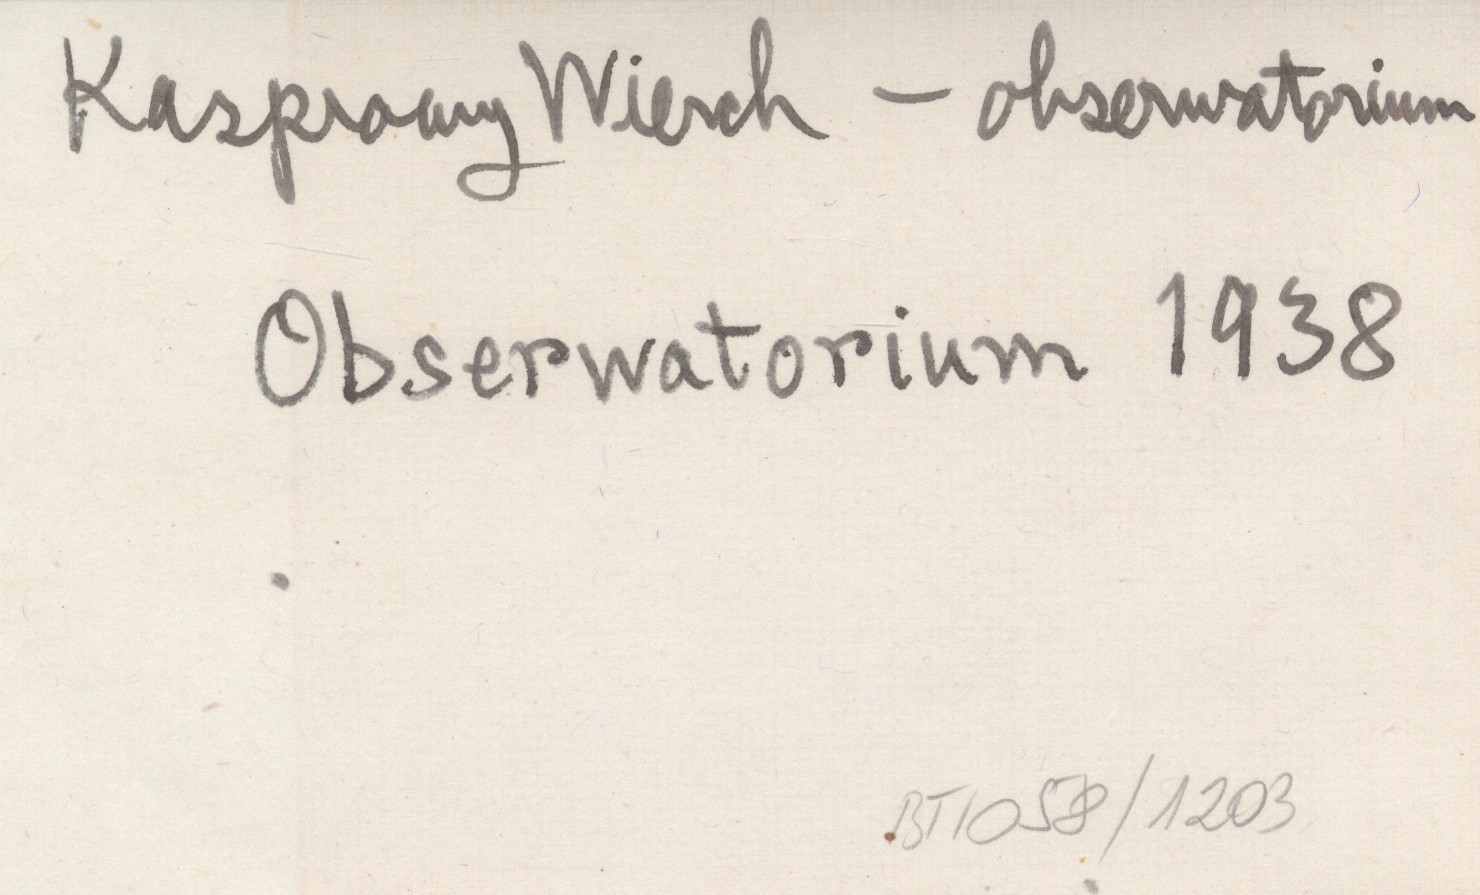 Kasprowy Wierch – obserwatorium
Obserwatorium 1938
BT1058/1203